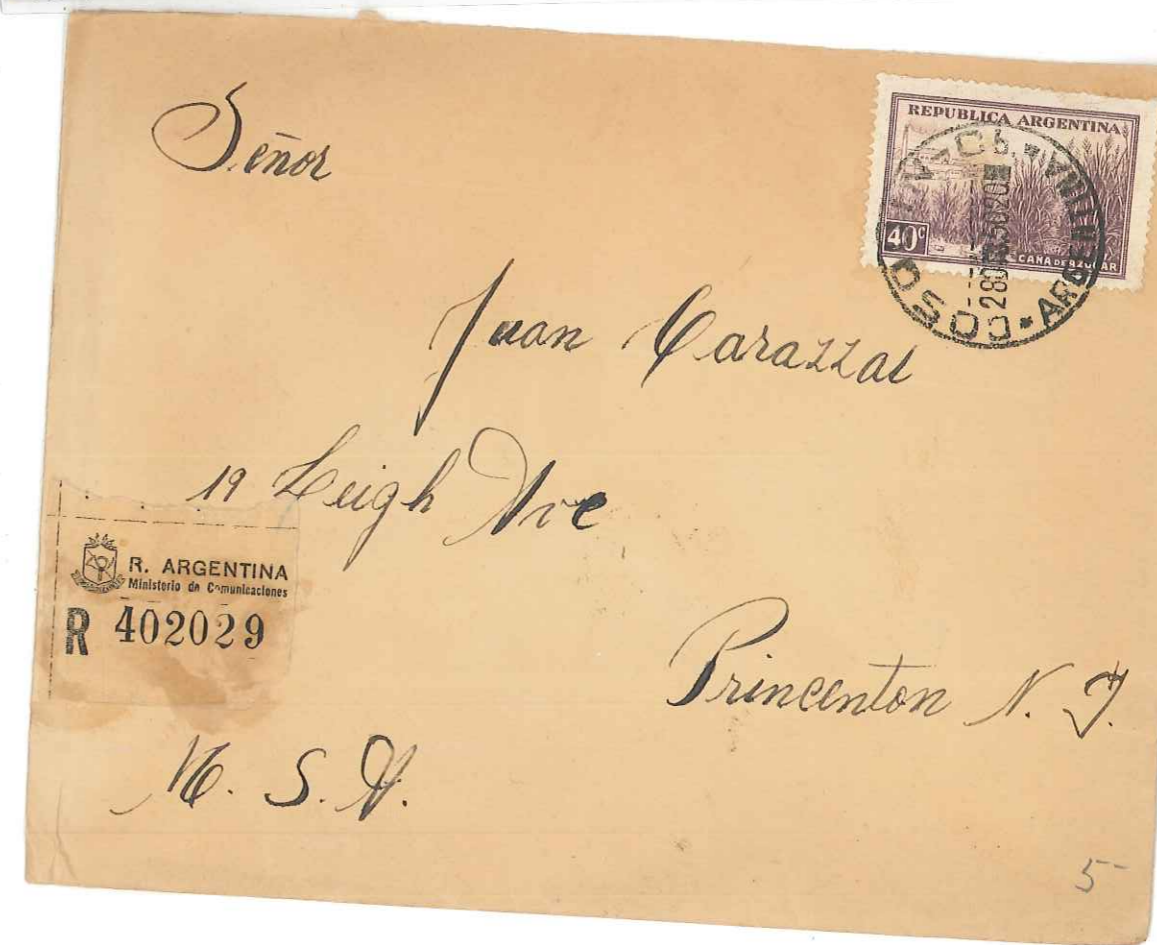 Señor
REPUBLICA ARGENTINA
40c
CAÑA DE AZUCAR
ARGENTINA
Juan Carazzai
19 Leigh Ave
R. ARGENTINA
Ministerio de Comunicaciones
R 402029
Princenton N. J.
U. S. A.
5-